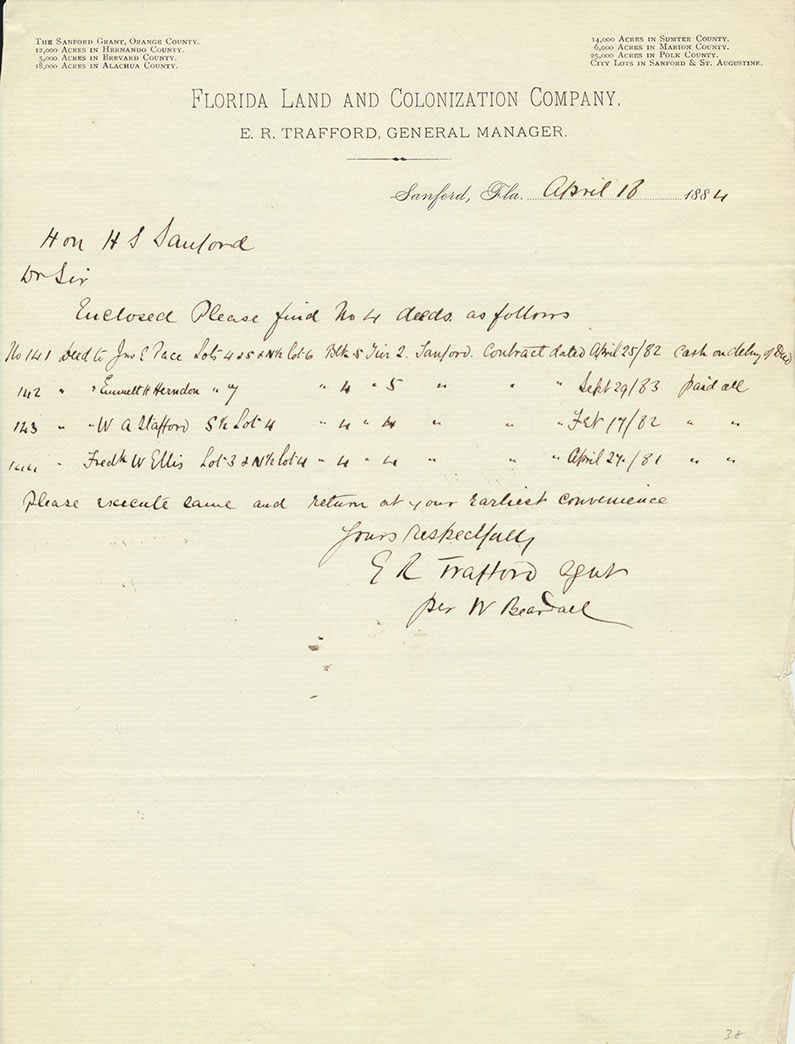 The Sanford Grant, Orange County.
12,000 Acres in Hernando County.
5,000 Acres in Brevard County.
18,000 Acres in Alachua County.
14,000 Acres in Sumter County.
6,000 Acres in Marion County.
25,000 Acres in Polk County.
City Lots in Sanford & St. Augustine.
Florida Land and Colonization Company.
E. R. TRAFFORD, GENERAL MANAGER.
Sanford, Fla. April 18 1884
Hon H S Sanford
Dr Sir
Enclosed Please find No 4 deeds as follows
No 141 Deed to Jno E Pace Lots 4 & 5 & N½ lot 6 Blk 5 Tier 2. Sanford. Contract dated April 25/82 Cash on delvy of Deed
142 " " Emmett H Herndon " 7 " 4 " 5 " " " Sept 29/83 paid all
143 " " W A Stafford S½ Lot 4 " 4 " 4 " " " Feb 17/82 " "
144 " Fredk W Ellis Lot 3 & N½ lot 4 " 4 " 4 " " " April 27/81 " "
Please execute same and return at your earliest convenience
Yours respectfully
E R Trafford agent
per W Beardall
38